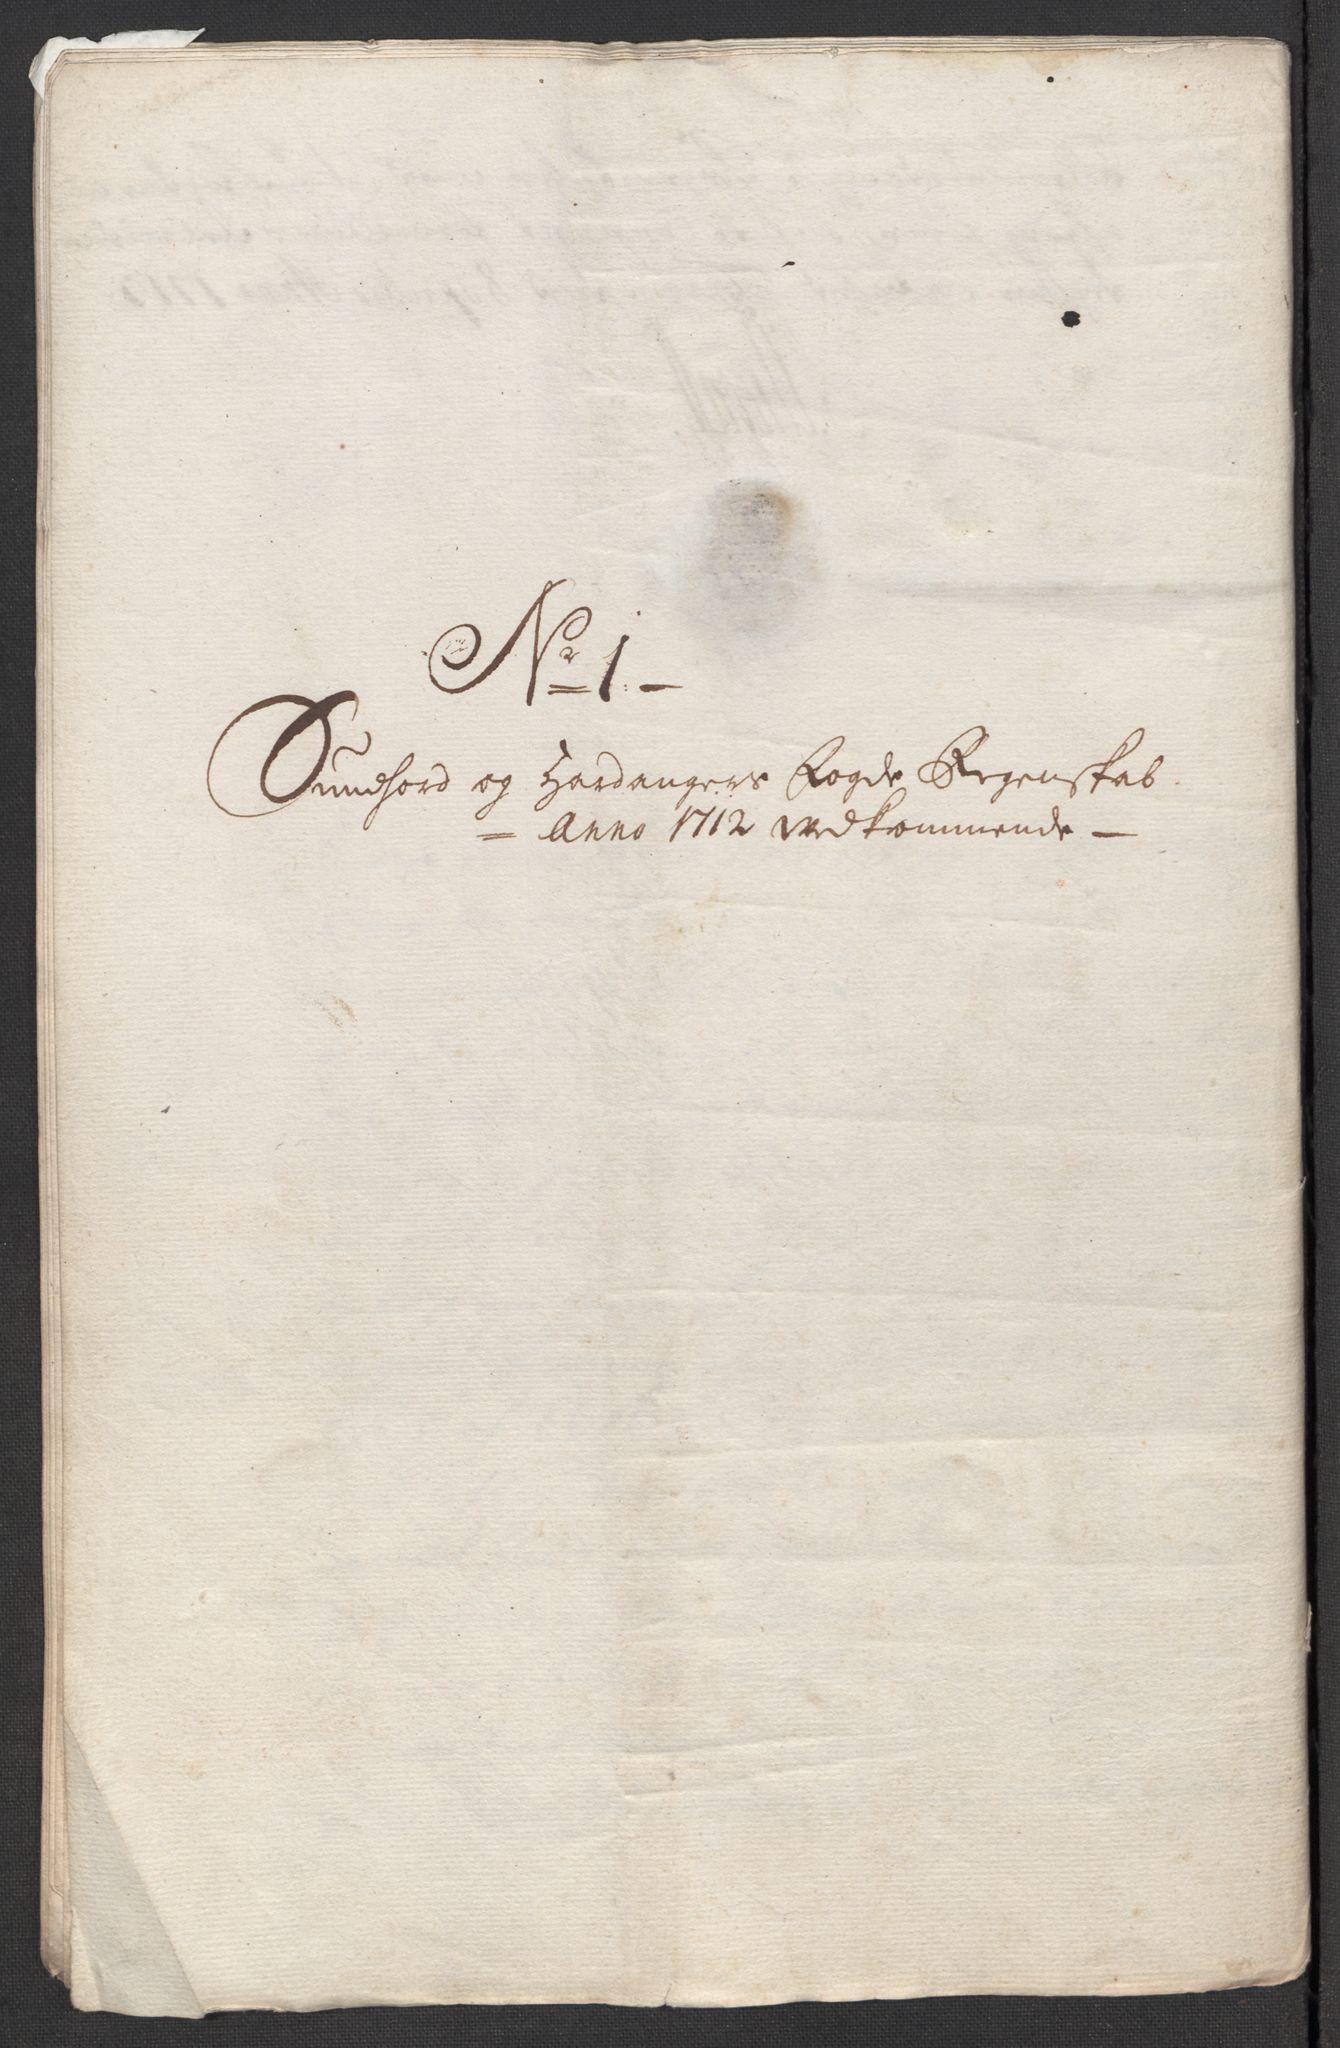 No 1.
Sundhord og Hardangers Fogde Regenskab
Anno 1712 vedkommende